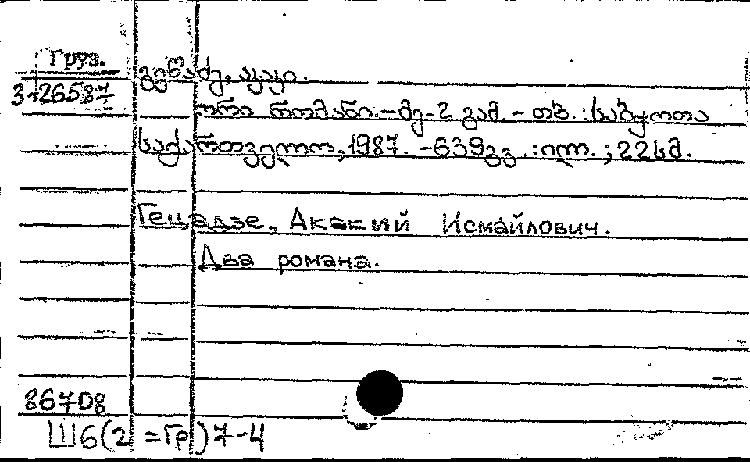 Груз.
გეწაძე, აკაკი.
3426587
ორი რომანი.–მე-2 გამ. – თბ. : საბჭოთა
საქართველო, 1987. – 639გვ. : ილ. ; 22სმ.
Гецадзе, Акакий Исмайлович.
Два романа.
86708
Ш6(2=Гр)7-4